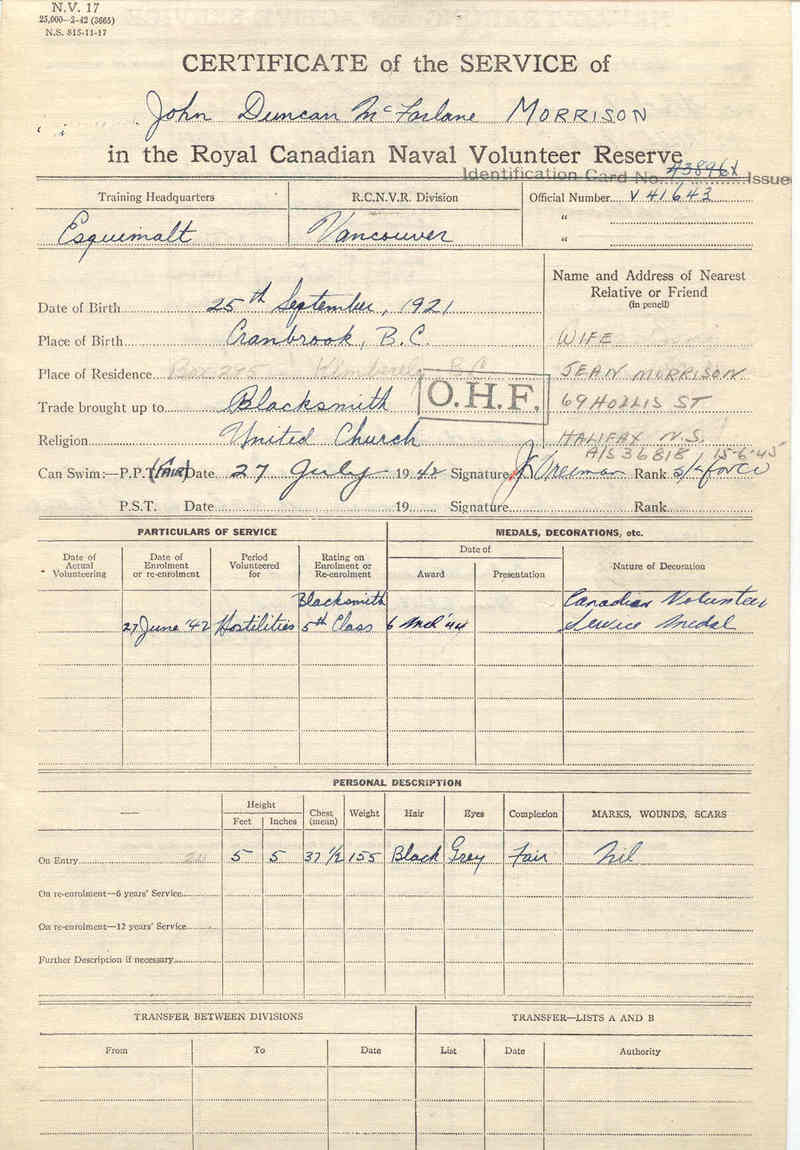 N.V. 17
25,000—2-42 (3665)
N.S. 815-11-17
CERTIFICATE of the SERVICE of
John Duncan McFarlane MORRISON
in the Royal Canadian Naval Volunteer Reserve
Identification Card No. 43896X Issue
Training Headquarters R.C.N.V.R. Division Official Number V 41643
Esquimalt Vancouver "
"
Name and Address of Nearest
Relative or Friend
(in pencil)
Date of Birth 25th September, 1921
Place of Birth Cranbrook, B.C. WIFE
Place of Residence Box 275 Kimberley B.C. JEAN MORRISON
Trade brought up to Blacksmith O.H.F. 69 HOLLIS ST
Religion United Church HALIFAX N.S.
A/S 36818 15-6-45
Can Swim:—P.P.T. (FAIR) Date 27 July 1942 Signature Rank
P.S.T. Date 19 Signature Rank
PARTICULARS OF SERVICE MEDALS, DECORATIONS, etc.
Date of Actual Volunteering Date of Enrolment or re-enrolment Period Volunteered for Rating on Enrolment or Re-enrolment Date of Award Presentation Nature of Decoration
27 June '42 Hostilities Blacksmith 5th Class 6 Mch '44 Canadian Volunteer Service Medal
PERSONAL DESCRIPTION
Height Feet Inches Chest (mean) Weight Hair Eyes Complexion MARKS, WOUNDS, SCARS
On Entry 5 5 37 1/2 155 Black Grey Fair Nil
On re-enrolment—6 years' Service
On re-enrolment—12 years' Service
Further Description if necessary
TRANSFER BETWEEN DIVISIONS TRANSFER—LISTS A AND B
From To Date List Date Authority